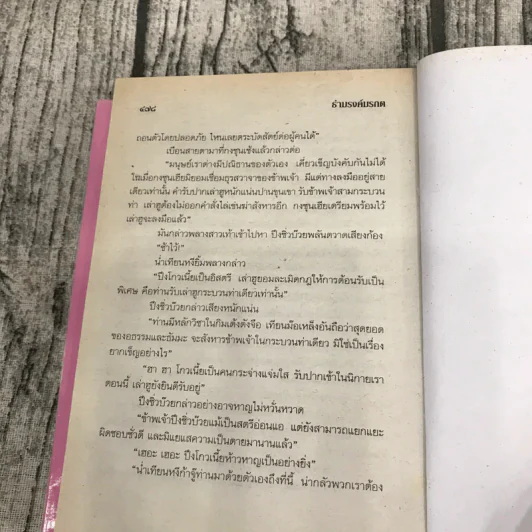 ๔๗๘
ธำมรงค์มรกต
ถอนตัวโดยปลอดภัย ไหนเลยตระบัดสัตย์ต่อผู้คนได้"
เบือนสายตามาที่กงซุนเซ้งแล้วกล่าวต่อ
"มนุษย์เราต่างมีปณิธานของตัวเอง เคี่ยวเข็ญบังคับกันไม่ได้
ใช่เมื่อกงซุนเฮียมิยอมเชื่อมธุรสวาจาของข้าพเจ้า มีแต่ทางลงมืออยู่สาย
เดียวเท่านั้น คำรับปากเล่าฮูหนักแน่นปานขุนเขา รับข้าพเจ้าสามกระบวน
ท่า เล่าฮูต้องไม่ออกคำสั่งไล่เข่นฆ่าสังหารอีก กงซุนเฮียเตรียมพร้อมไว้
เล่าฮูจะลงมือแล้ว"
มันกล่าวพลางสาวเท้าเข้าไปหา ปึงชิ่วบ๊วยพลันตวาดเสียงก้อง
"ช้าไว้!"
น่ำเทียนหงียิ้มพลางกล่าว
"ปึงโกวเนี้ยเป็นอิสตรี เล่าฮูยอมละเมิดกฎให้การต้อนรับเป็น
พิเศษ คือท่านรับเล่าฮูกระบวนท่าเดียวเท่านั้น"
ปึงชิ่วบ๊วยกล่าวเสียงหนักแน่น
"ท่านมีหลักวิชาในกิมเต็งตังจือ เทียนม้อเหลิงอันถือว่าสุดยอด
ของอธรรมและธัมมะ จะสังหารข้าพเจ้าในกระบวนท่าเดียว มิใช่เป็นเรื่อง
ยากเข็ญอย่างไร"
"ฮา ฮา โกวเนี้ยเป็นคนกระจ่างแจ่มใส รับปากเข้าในนิกายเรา
ตอนนี้ เล่าฮูยังยินดีรับอยู่"
ปึงชิ่วบ๊วยกล่าวอย่างอาจหาญไม่หวั่นหวาด
"ข้าพเจ้าปึงชิ่วบ๊วยแม้เป็นสตรีอ่อนแอ แต่ยังสามารถแยกแยะ
ผิดชอบชั่วดี และมิแยแสความเป็นตายมานานแล้ว"
"เฮอะ เฮอะ ปึงโกวเนี้ยห้าวหาญเป็นอย่างยิ่ง"
"น่ำเทียนหงีก้าจู๊ท่านมาด้วยตัวเองถึงที่นี้ น่ากลัวพวกเราต้อง